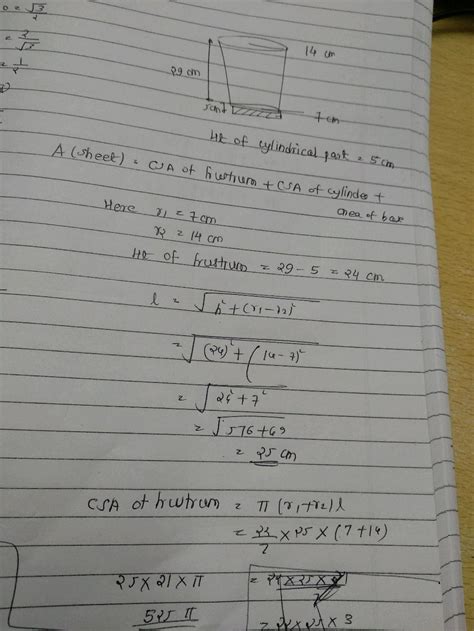 0 = √3/2
= 2/√3
= 1/2
14 cm
29 cm
5cm
7 cm
Ht of cylindrical part = 5cm
A (sheet) = CSA of frustrum + CSA of cylinder +
area of base
Here r1 = 7cm
r2 = 14 cm
Ht of frustrum = 29 - 5 = 24 cm
l = √h² + (r1 - r2)²
= √(24)² + (14 - 7)²
= √24² + 7²
= √576 + 49
= 25 cm
CSA of frustrum = π (r1 + r2) l
= 22/7 × 25 × (7 + 14)
25 × 21 × π
= 22 × 25 × 21
525 π
= 22 × 25 × 3